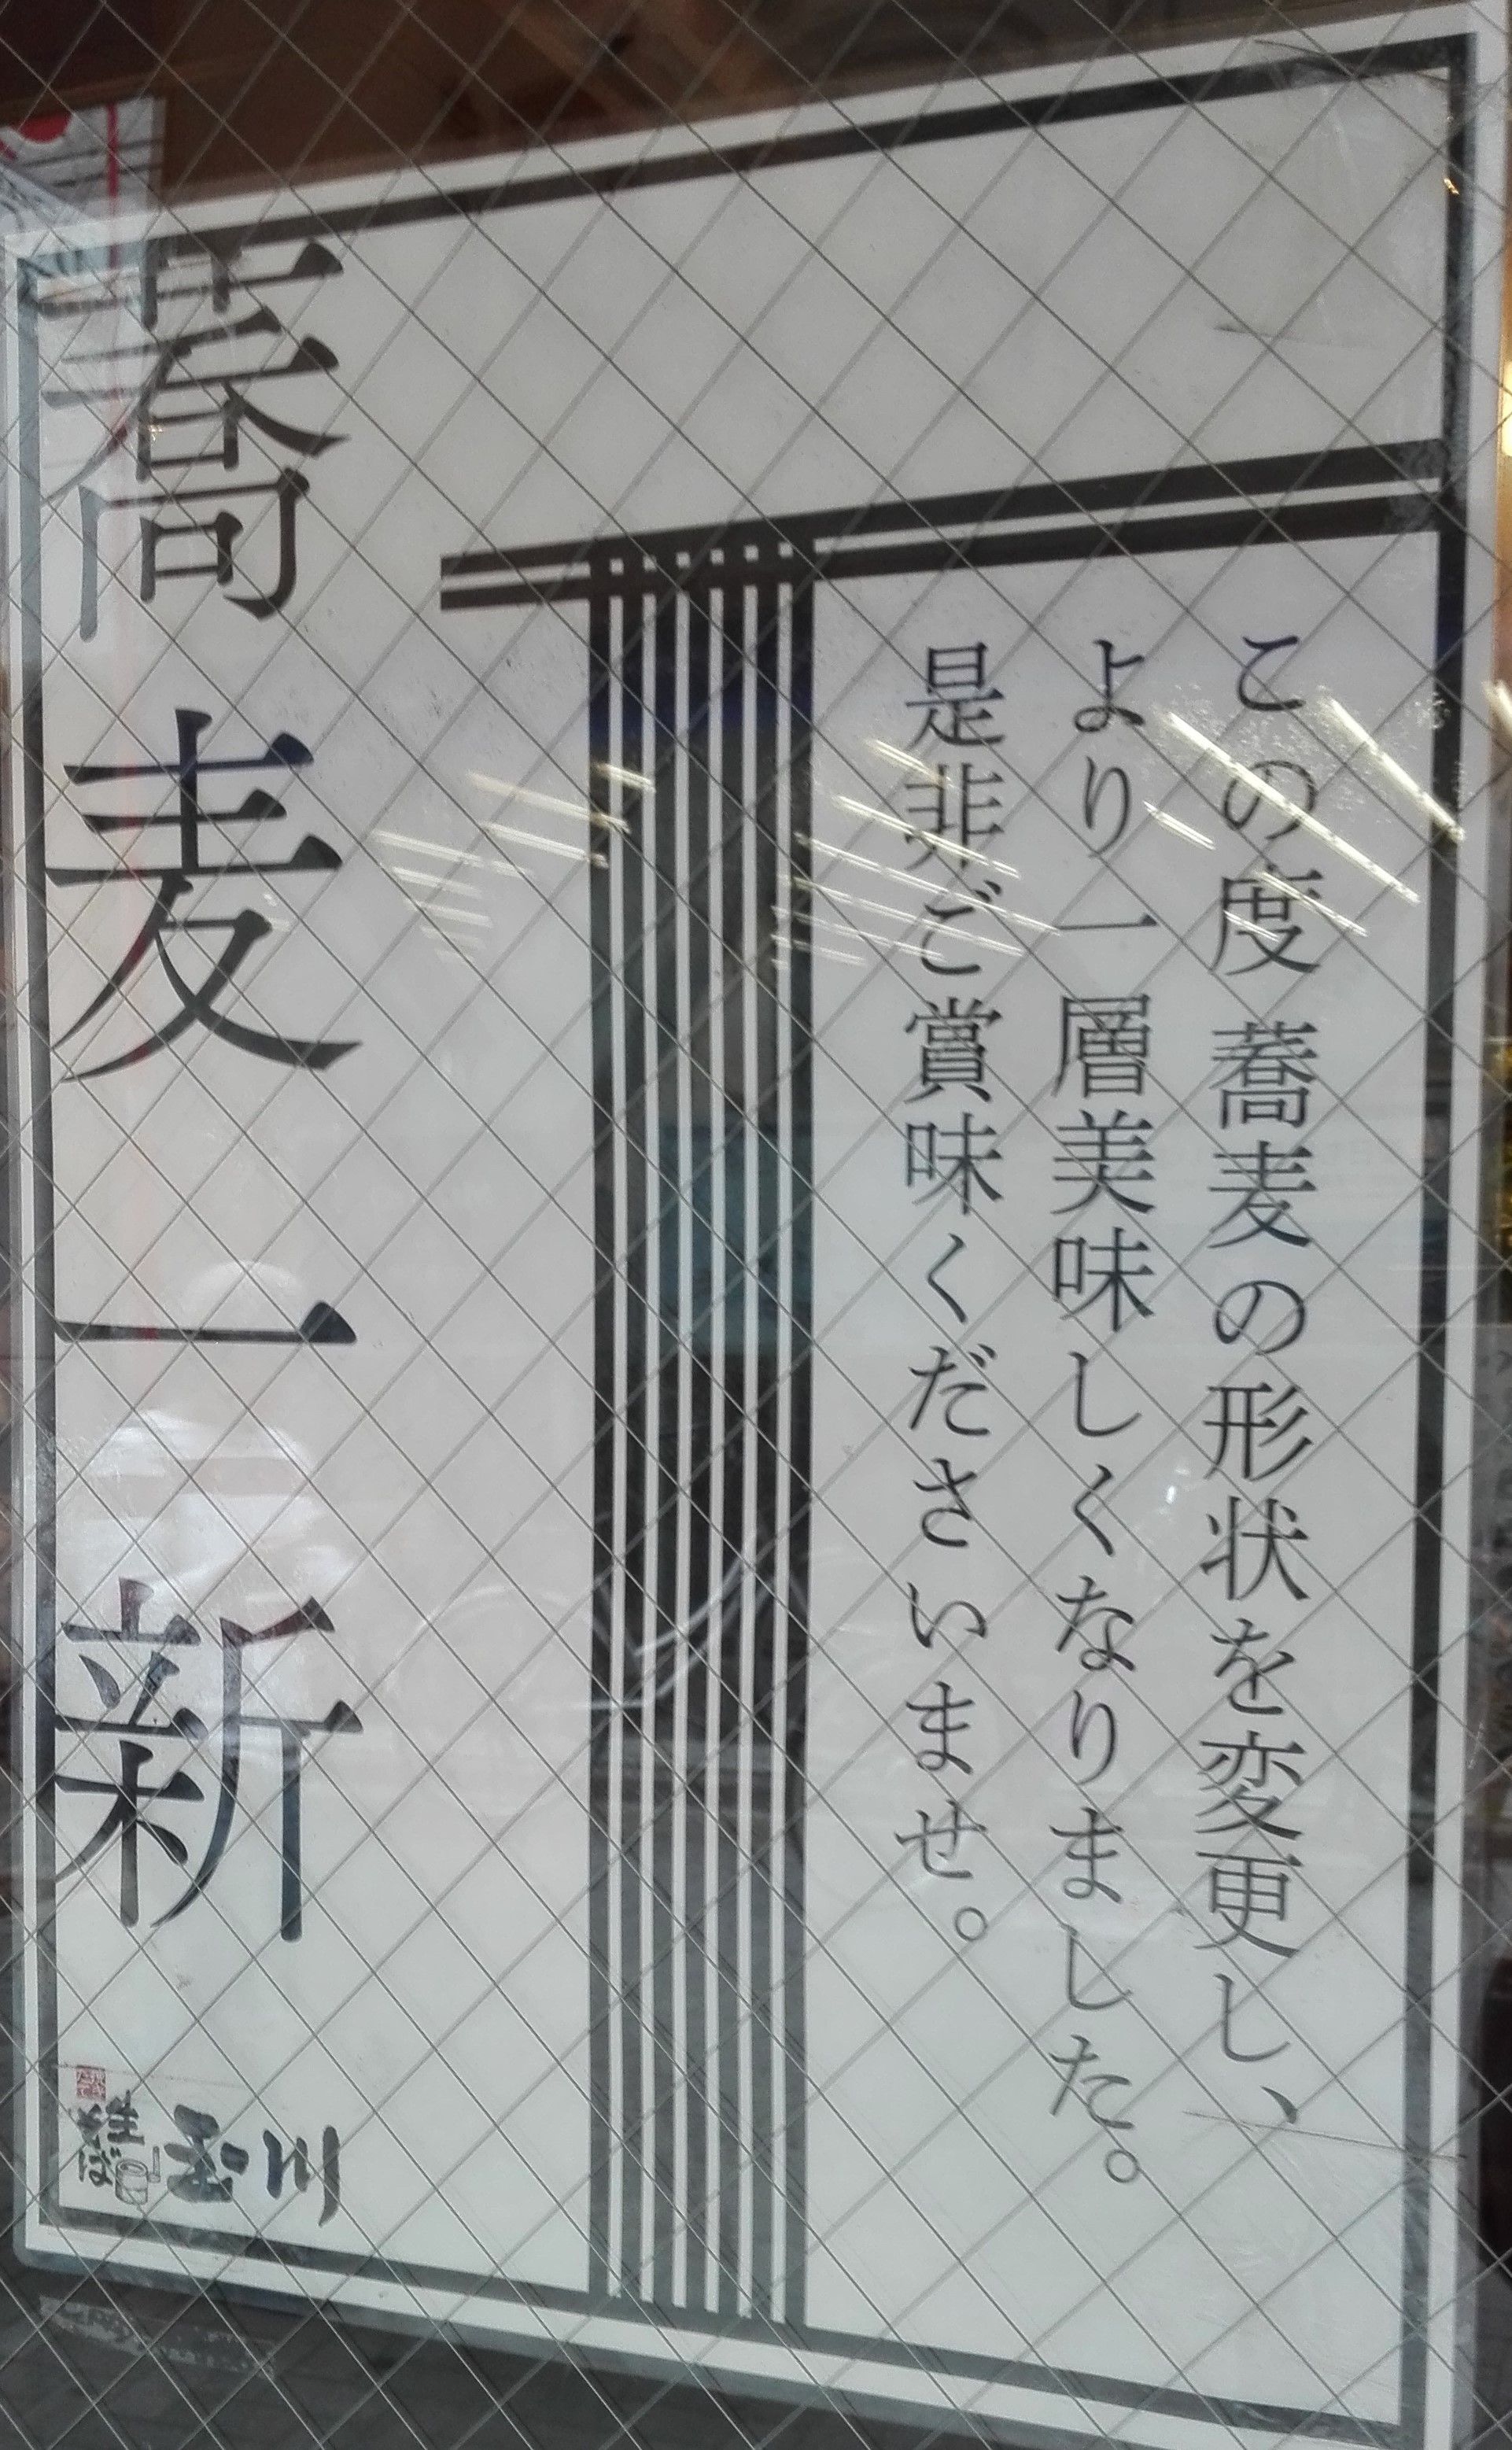 この度蕎麦の形状を変更し、
より一層美味しくなりました。
是非ご賞味くださいませ。
蕎麦一新
生そば
玉川